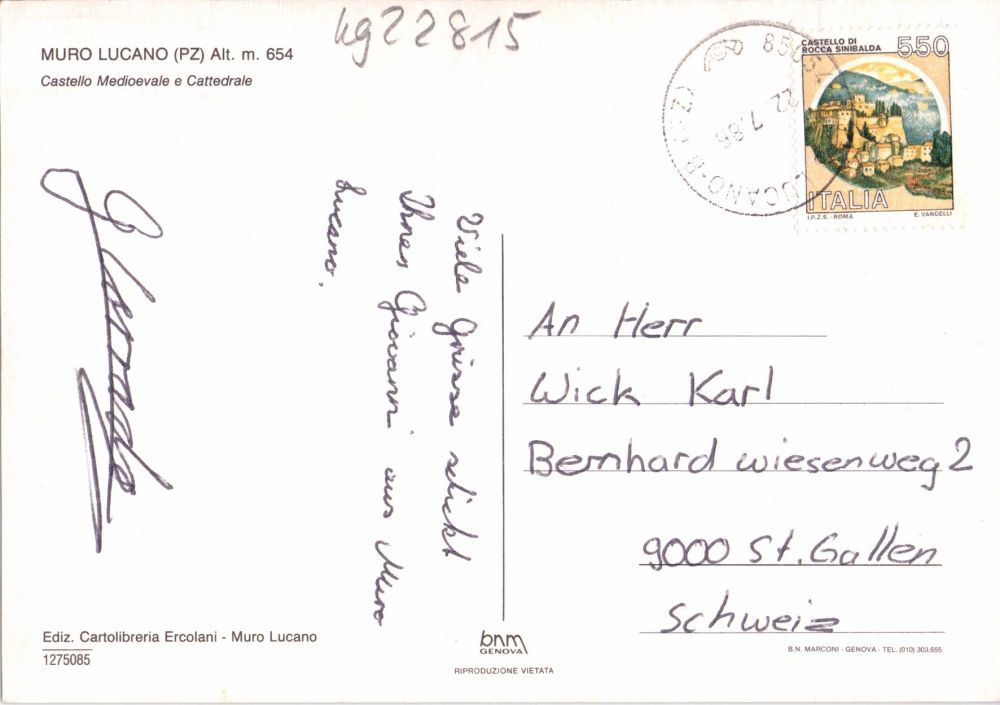 kg22815
MURO LUCANO (PZ) Alt. m. 654
Castello Medioevale e Cattedrale
CASTELLO DI
ROCCA SINIBALDA
550
ITALIA
I.P.Z.S. - ROMA
E. VANGELLI
LUCANO-B (PZ)
22.7.86
Viele Grüsse schickt
Ihnen Giovanni aus Muro
Lucano.
An Herr
Wick Karl
Bernhard wiesenweg 2
9000 St. Gallen
Schweiz
Ediz. Cartolibreria Ercolani - Muro Lucano
1275085
bnm
GENOVA
RIPRODUZIONE VIETATA
B.N. MARCONI - GENOVA - TEL. (010) 303.655